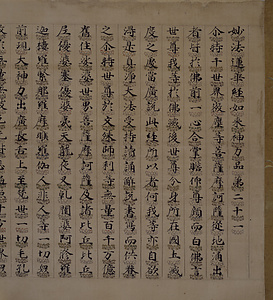 妙法蓮華經如來神力品第二十一
尒時千世界微塵等菩薩摩訶薩從地涌出
者皆於佛前一心合掌瞻仰尊顏而白佛言
世尊我等於佛滅後世尊分身所在國土滅
度之處當廣說此經所以者何我等亦自欲
得是真淨大法受持讀誦解說書寫而供養
之尒時世尊於文殊師利等無量百千万億
舊住娑婆世界菩薩摩訶薩及諸比丘比丘
尼優婆塞優婆夷天龍夜叉乾闥婆阿修羅
迦樓羅緊那羅摩睺羅伽人非人等一切衆
前現大神力出廣長舌上至梵世一切毛孔